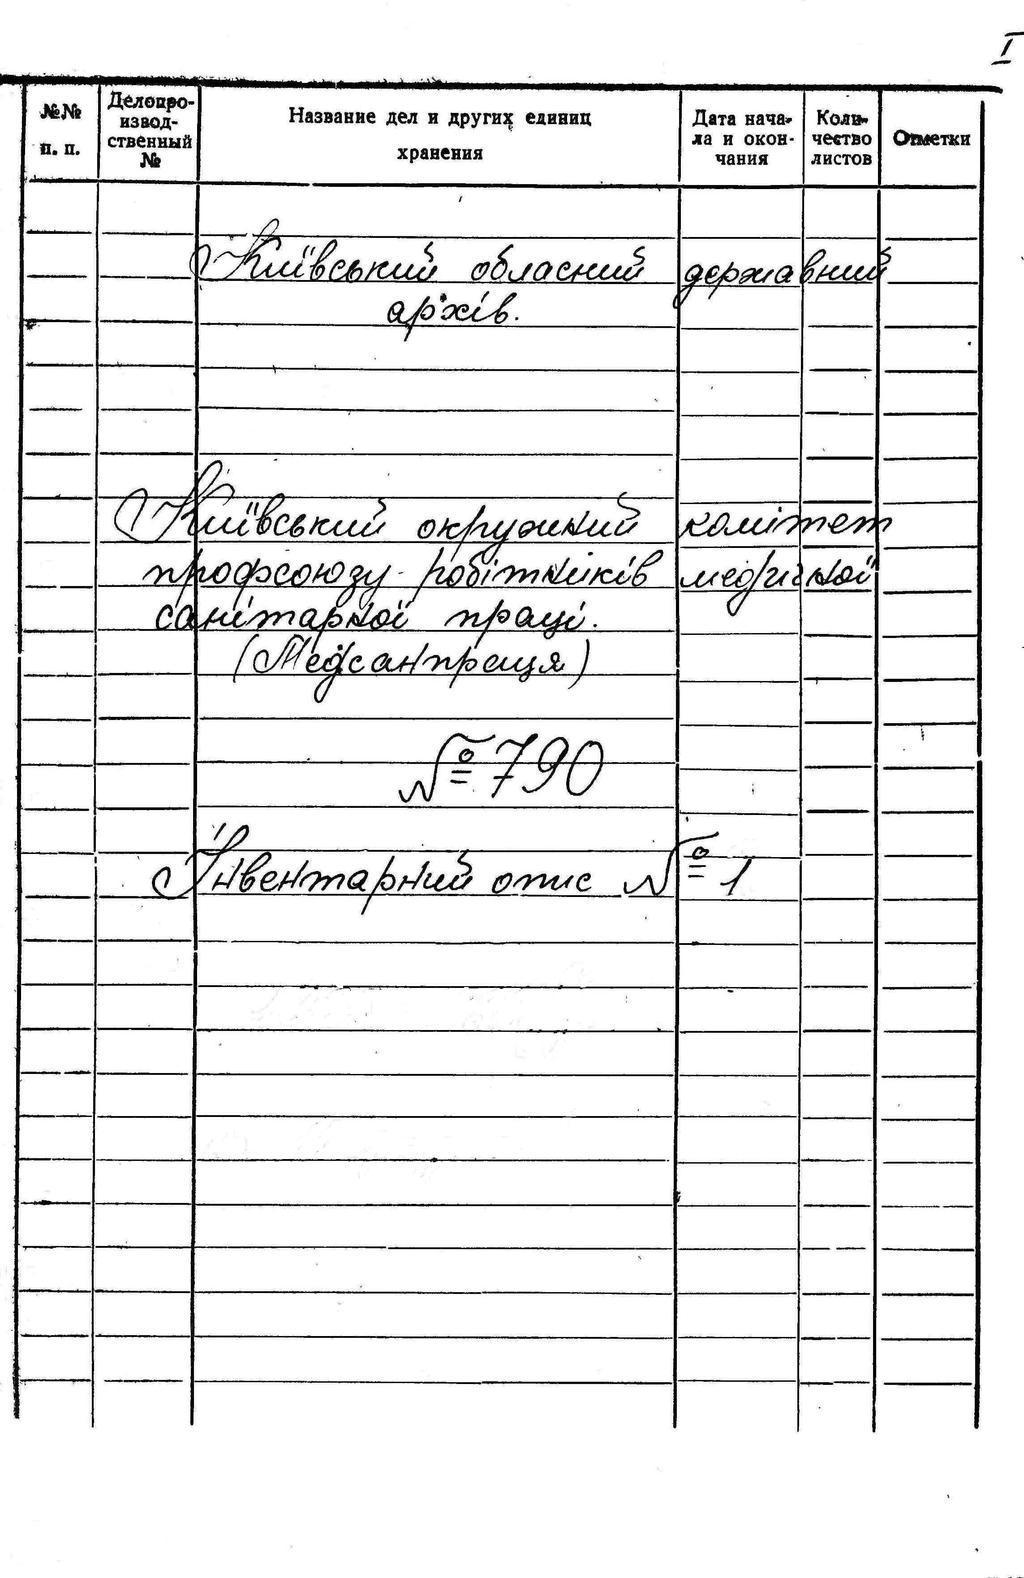 I
№№ п. п.
Делопроизвод-ственный №
Название дел и других единиц хранения
Дата нача-ла и окон-чания
Коли-чество листов
Отметки
Київський обласний державний
архів.
Київський окружний комітет
профсоюзу робітників медичної
санітарної праці.
(Медсанпраця)
№ 790
Інвентарний опис № 1